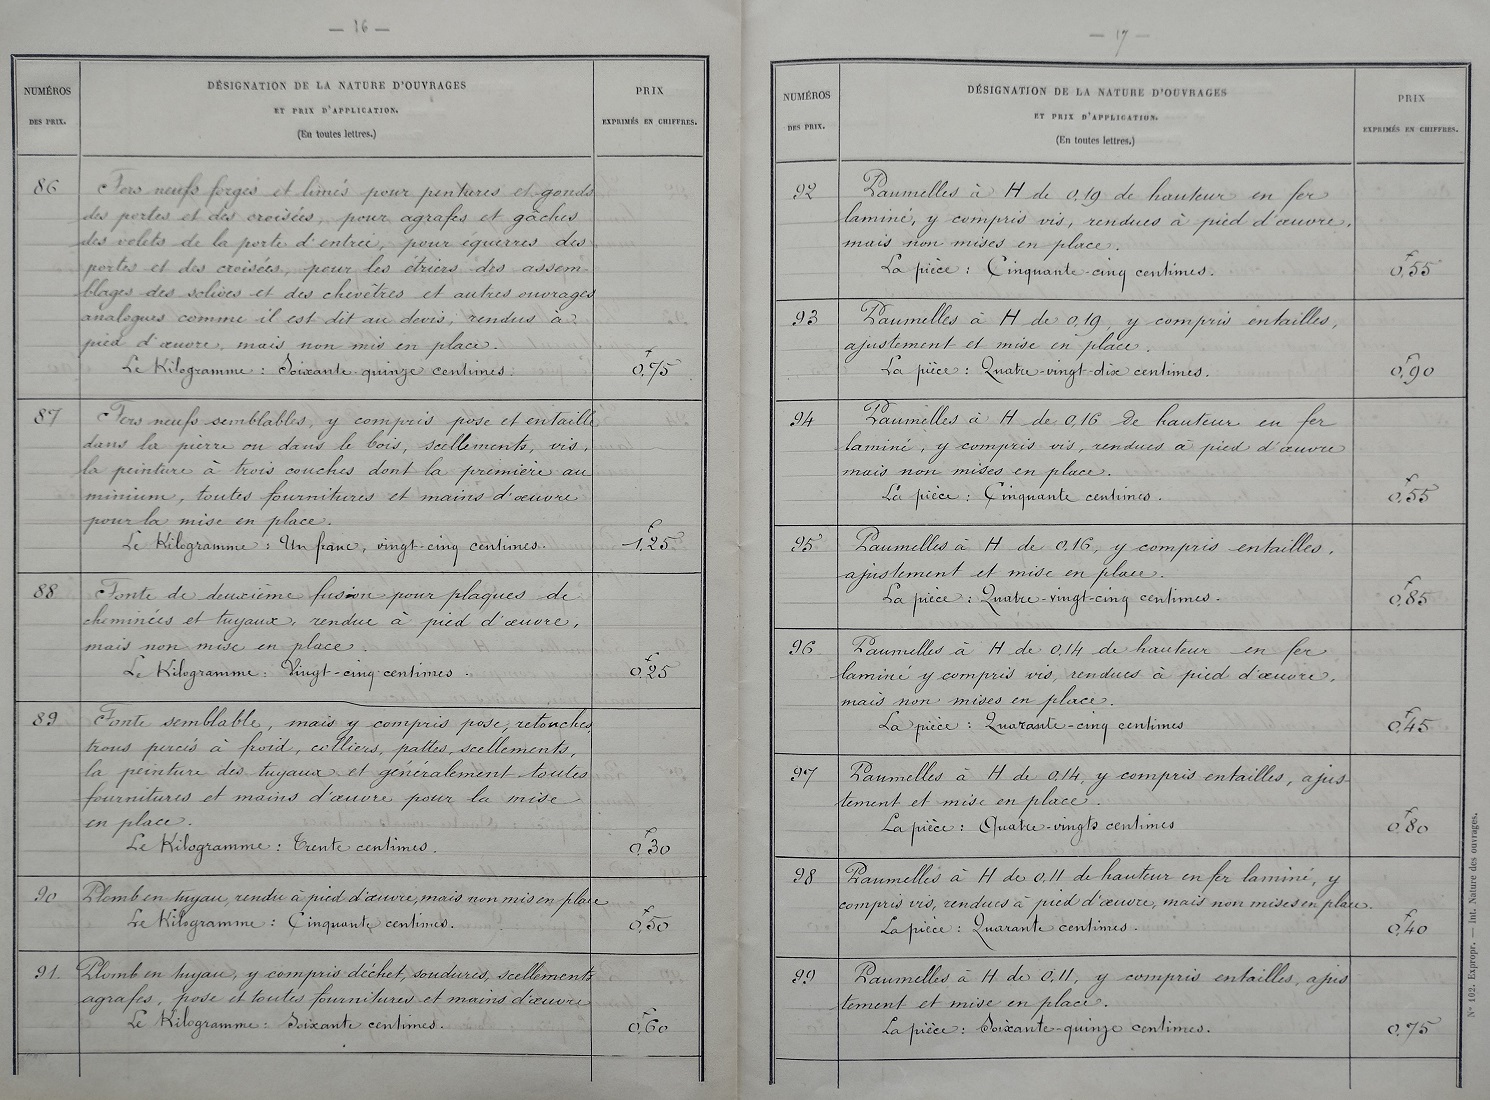 — 16 —
NUMÉROS
DES PRIX.
DÉSIGNATION DE LA NATURE D'OUVRAGES
ET PRIX D'APPLICATION.
(En toutes lettres.)
PRIX
EXPRIMÉS EN CHIFFRES.
86 Fers neufs forgés et limés pour pentures et gonds
des portes et des croisées, pour agrafes et gâches
des volets de la porte d'entrée, pour équerres des
portes et des croisées, pour les étriers des assem-
blages des solives et des chevêtres et autres ouvrages
analogues comme il est dit au devis, rendus à
pied d'œuvre, mais non mis en place.
Le Kilogramme : Soixante-quinze centimes. 0,75
87 Fers neufs semblables, y compris pose et entaille
dans la pierre ou dans le bois, scellements, vis,
la peinture à trois couches dont la première au
minium, toutes fournitures et mains d'œuvre
pour la mise en place.
Le Kilogramme : Un franc, vingt-cinq centimes. 1,25
88 Fonte de deuxième fusion pour plaques de
cheminées et tuyaux, rendue à pied d'œuvre,
mais non mise en place.
Le Kilogramme : Vingt-cinq centimes. 0,25
89 Fonte semblable, mais y compris pose, retouches,
trous percés à froid, colliers, pattes, scellements,
la peinture des tuyaux et généralement toutes
fournitures et mains d'œuvre pour la mise
en place.
Le Kilogramme : Trente centimes. 0,30
90 Plomb en tuyau, rendu à pied d'œuvre, mais non mis en place
Le Kilogramme : Cinquante centimes. 0,50
91. Plomb en tuyau, y compris déchet, soudures, scellements
agrafes, pose et toutes fournitures et mains d'œuvre
Le Kilogramme : Soixante centimes. 0,60
— 17 —
NUMÉROS
DES PRIX.
DÉSIGNATION DE LA NATURE D'OUVRAGES
ET PRIX D'APPLICATION.
(En toutes lettres.)
PRIX
EXPRIMÉS EN CHIFFRES.
92 Paumelles à H de 0,19 de hauteur en fer
laminé, y compris vis, rendues à pied d'œuvre,
mais non mises en place.
La pièce : Cinquante-cinq centimes. 0,55
93 Paumelles à H de 0,19, y compris entailles,
ajustement et mise en place.
La pièce : Quatre-vingt-dix centimes. 0,90
94 Paumelles à H de 0,16 de hauteur en fer
laminé, y compris vis, rendues à pied d'œuvre
mais non mises en place.
La pièce : Cinquante centimes. 0,55
95 Paumelles à H de 0,16, y compris entailles,
ajustement et mise en place.
La pièce : Quatre-vingt-cinq centimes. 0,85
96 Paumelles à H de 0,14 de hauteur en fer
laminé y compris vis, rendues à pied d'œuvre,
mais non mises en place.
La pièce : Quarante-cinq centimes 0,45
97 Paumelles à H de 0,14, y compris entailles, ajus-
tement et mise en place.
La pièce : Quatre-vingts centimes 0,80
98 Paumelles à H de 0,11 de hauteur en fer laminé, y
compris vis, rendues à pied d'œuvre, mais non mises en place.
La pièce : Quarante centimes. 0,40
99 Paumelles à H de 0,11, y compris entailles, ajus
tement et mise en place.
La pièce : Soixante-quinze centimes. 0,75
N° 102. Expropr. — Int. Nature des ouvrages.